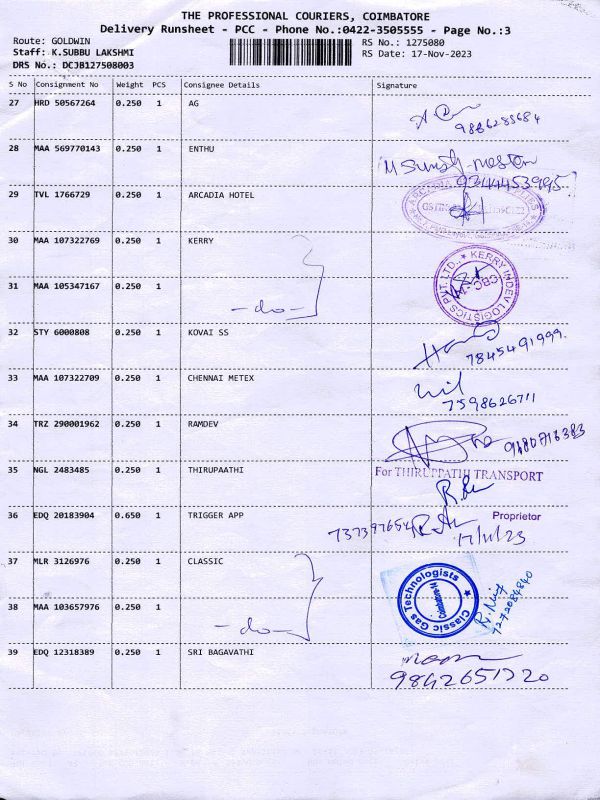 THE PROFESSIONAL COURIERS, COIMBATORE
Delivery Runsheet - PCC - Phone No.:0422-3505555 - Page No.:3
Route: GOLDWIN
Staff: K.SUBBU LAKSHMI
DRS No.: DCJB127508003
RS No.: 1275080
RS Date: 17-Nov-2023
S No Consignment No Weight PCS Consignee Details Signature
27 HRD 50567264 0.250 1 AG
28 MAA 569770143 0.250 1 ENTHU
29 TVL 1766729 0.250 1 ARCADIA HOTEL
30 MAA 107322769 0.250 1 KERRY
KERRY INDEV LOGISTICS PVT. LTD.
CBC
31 MAA 105347167 0.250 1
-do-
32 STY 6000808 0.250 1 KOVAI SS
7845491999
33 MAA 107322709 0.250 1 CHENNAI METEX
7598626711
34 TRZ 290001962 0.250 1 RAMDEV
35 NGL 2483485 0.250 1 THIRUPAATHI
For THIRUPPATHI TRANSPORT
36 EDQ 20183904 0.650 1 TRIGGER APP
Proprietor
17/11/23
37 MLR 3126976 0.250 1 CLASSIC
Classic Gas Technologists
7272084840
38 MAA 103657976 0.250 1
-do-
39 EDQ 12318389 0.250 1 SRI BAGAVATHI
9842651220